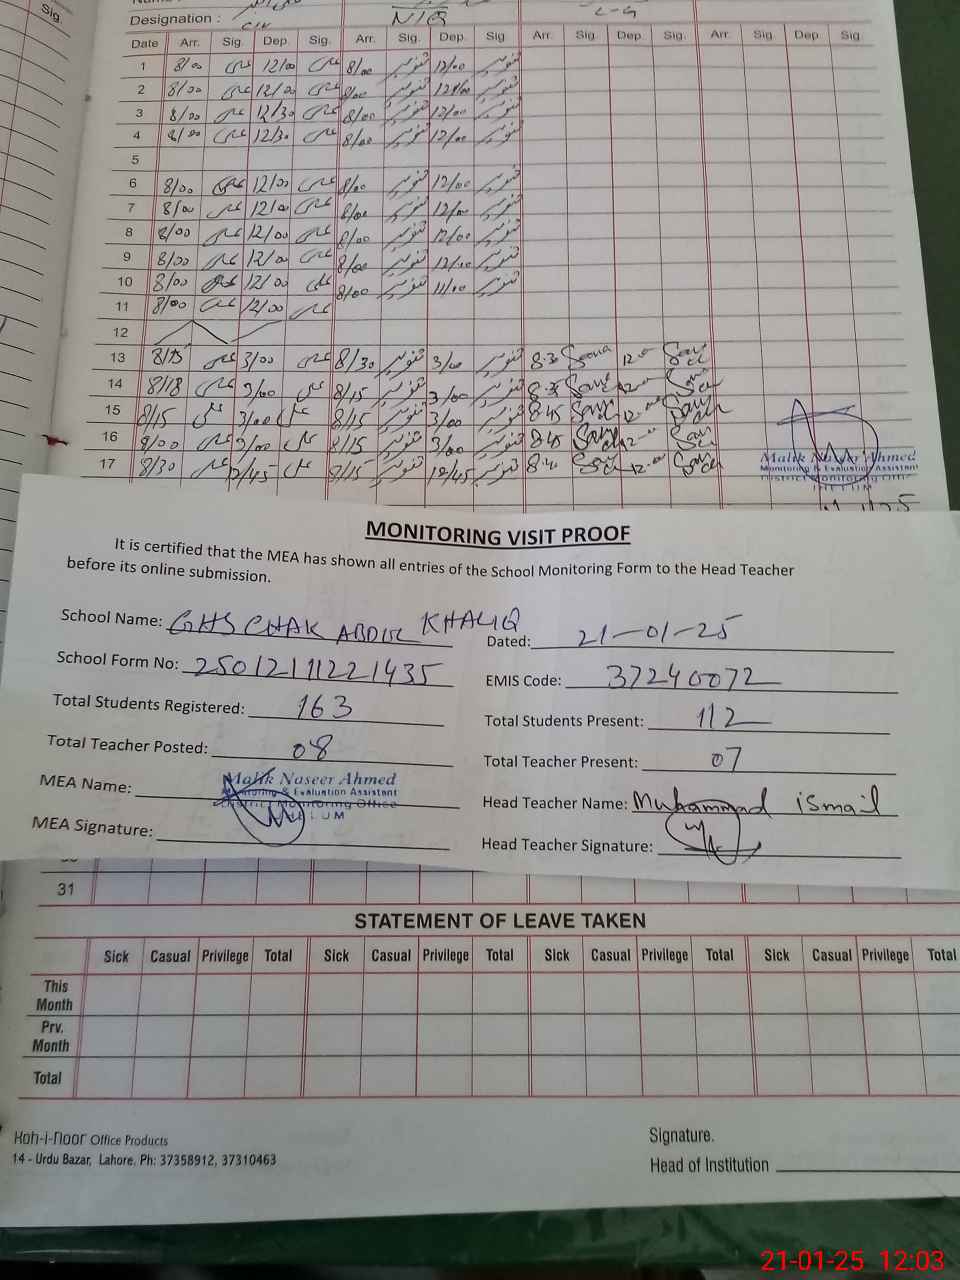 Sig.
Designation :
N/Q
Date Arr. Sig. Dep. Sig. Arr. Sig. Dep. Sig Arr. Sig. Dep. Sig. Arr. Sig. Dep. Sig
1 8/00 12/00 8/00 تنویر 12/00 تنویر
2 8/00 12/00 8/00 تنویر 12/00 تنویر
3 8/00 12/30 8/00 تنویر 12/00 تنویر
4 8/00 12/30 8/00 تنویر 12/00 تنویر
5
6 8/00 12/00 8/00 تنویر 12/00 تنویر
7 8/00 12/00 8/00 تنویر 12/00 تنویر
8 8/00 12/00 8/00 تنویر 12/00 تنویر
9 8/00 12/00 8/00 تنویر 12/00 تنویر
10 8/00 12/00 8/00 تنویر 11/00 تنویر
11 8/00 12/00
12
13 8/15 3/00 8/30 تنویر 3/00 تنویر 8.30
14 8/18 3/00 8/15 تنویر 3/00 تنویر
15 8/15 3/00 8/15 تنویر 3/00 تنویر 8.45
16 9/00 3/00 8/15 تنویر 3/00 تنویر 8.45
17 8/30 12/45 8/15 تنویر 12/45 تنویر 8.40
Malik Naseer Ahmed
Monitoring & Evaluation Assistant
District Monitoring Office
JHELUM
MONITORING VISIT PROOF
It is certified that the MEA has shown all entries of the School Monitoring Form to the Head Teacher
before its online submission.
School Name: GHS CHAK ABDUL KHALIQ Dated: 21-01-25
School Form No: 25012111221435 EMIS Code: 37240072
Total Students Registered: 163 Total Students Present: 112
Total Teacher Posted: 08 Total Teacher Present: 07
MEA Name: Malik Naseer Ahmed Head Teacher Name: Muhammad ismail
Monitoring & Evaluation Assistant
District Monitoring Office
JHELUM
MEA Signature: Head Teacher Signature:
31
STATEMENT OF LEAVE TAKEN
Sick Casual Privilege Total Sick Casual Privilege Total Sick Casual Privilege Total Sick Casual Privilege Total
This Month
Prv. Month
Total
Koh-i-noor Office Products
14 - Urdu Bazar, Lahore. Ph: 37358912, 37310463
Signature.
Head of Institution
21-01-25 12:03